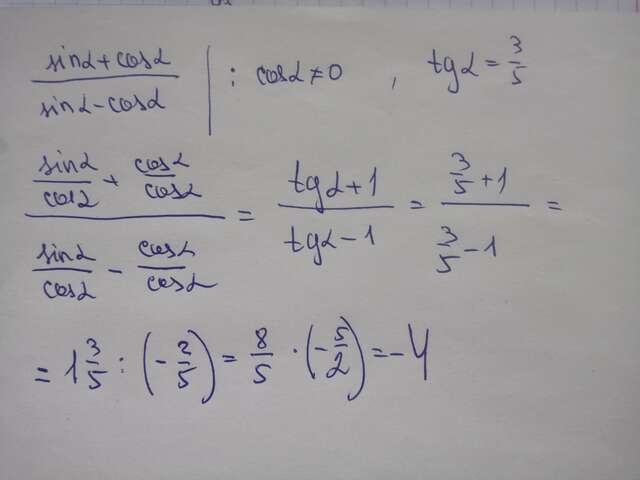 (sinα + cosα)/(sinα - cosα) | : cosα ≠ 0 , tgα = 3/5
(sinα/cosα + cosα/cosα)/(sinα/cosα - cosα/cosα) = (tgα + 1)/(tgα - 1) = (3/5 + 1)/(3/5 - 1) =
= 1 3/5 : (- 2/5) = 8/5 · (- 5/2) = -4